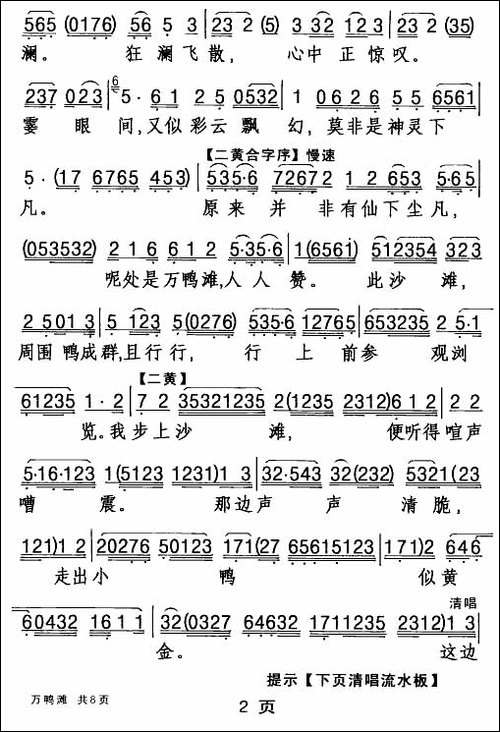 565 (0176) 56 5 3 23 2 (5) 3 32 1 2 3 23 2 (35)
澜。 狂 澜 飞 散, 心 中 正 惊 叹。
237 023 6 5· 6 1 2 5 0532 1 0 6 2 6 5 5 6561
霎 眼 间,又 似 彩 云 飘 幻, 莫 非 是 神 灵 下
【二黄合字序】慢速
5·(17 6765 453) 535·6 7267 2 1 2 653 5·65
凡。 原 来 并 非 有 仙 下 尘 凡,
(053532) 2 1 6 6 1 2 5·35·6 1(6561) 512354 323
呢 处 是 万 鸭 滩,人 人 赞。 此 沙 滩,
2 501 3 5 123 5(0276) 535·6 12765 653235 2 5·1
周 围 鸭 成 群,且 行 行, 行 上 前 参 观 浏
【二黄】
61235 1·2 7 2 35321235 2(1235 2312)6 1 2 2 2
览。我 步 上 沙 滩, 便 听 得 喧 声
5·16·123 1(5123 1231)1 3 32·543 32(232) 5321(23
嘈 震。 那 边 声 声 清 脆,
121)1 2 20276 50123 171(27 65615123 171)2 646
走 出 小 鸭 似 黄
清唱
60432 1611 32(0327 64632 1711235 2312)1 3
金。 这 边
提示【下页清唱流水板】
万鸭滩 共8页
2 页